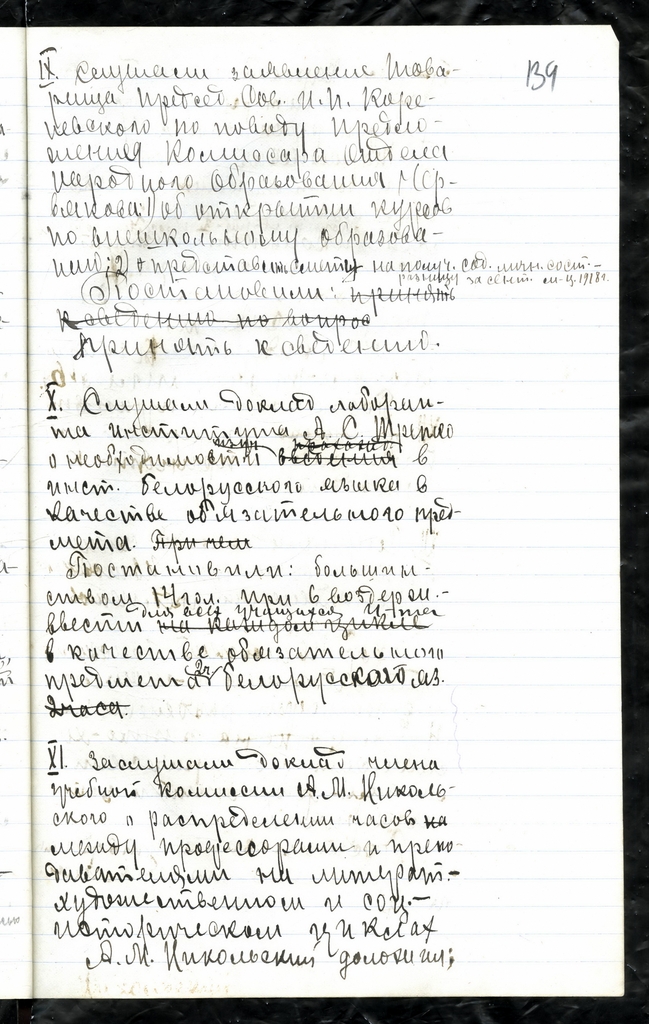 139
IX. Слушали заявление това-
рища Председ. Сов. И. И. Каре-
невского по поводу предло-
жения Комиссара Отдела
народного образования
об открытии курсов
по внешкольному образова-
нию; 2) о представ. сметы на получ. сод. личн. сост. -
разницу за сент. м-ц. 1918 г.
Постановили: принять
к сведению по вопрос
Принять к сведению.
X. Слушали доклад лаборан-
та института А. С.
о необходимости введения в
инст. белорусского языка в
качестве обязательного пред-
мета. При чем
Постановили: большин-
ством 14 гол. при 6 воздерж. -
для всех учащихся И-та
ввести на каждом цикле
в качестве обязательного
предмета 2 ч. белорусский яз.
2 часа.
XI. Заслушали доклад члена
учебной комиссии А. М. Николь-
ского о распределении часов на
между профессорами и препо-
давателями на литерат. -
художественном и соц. -
историческом циклах
А. М. Никольский доложил;